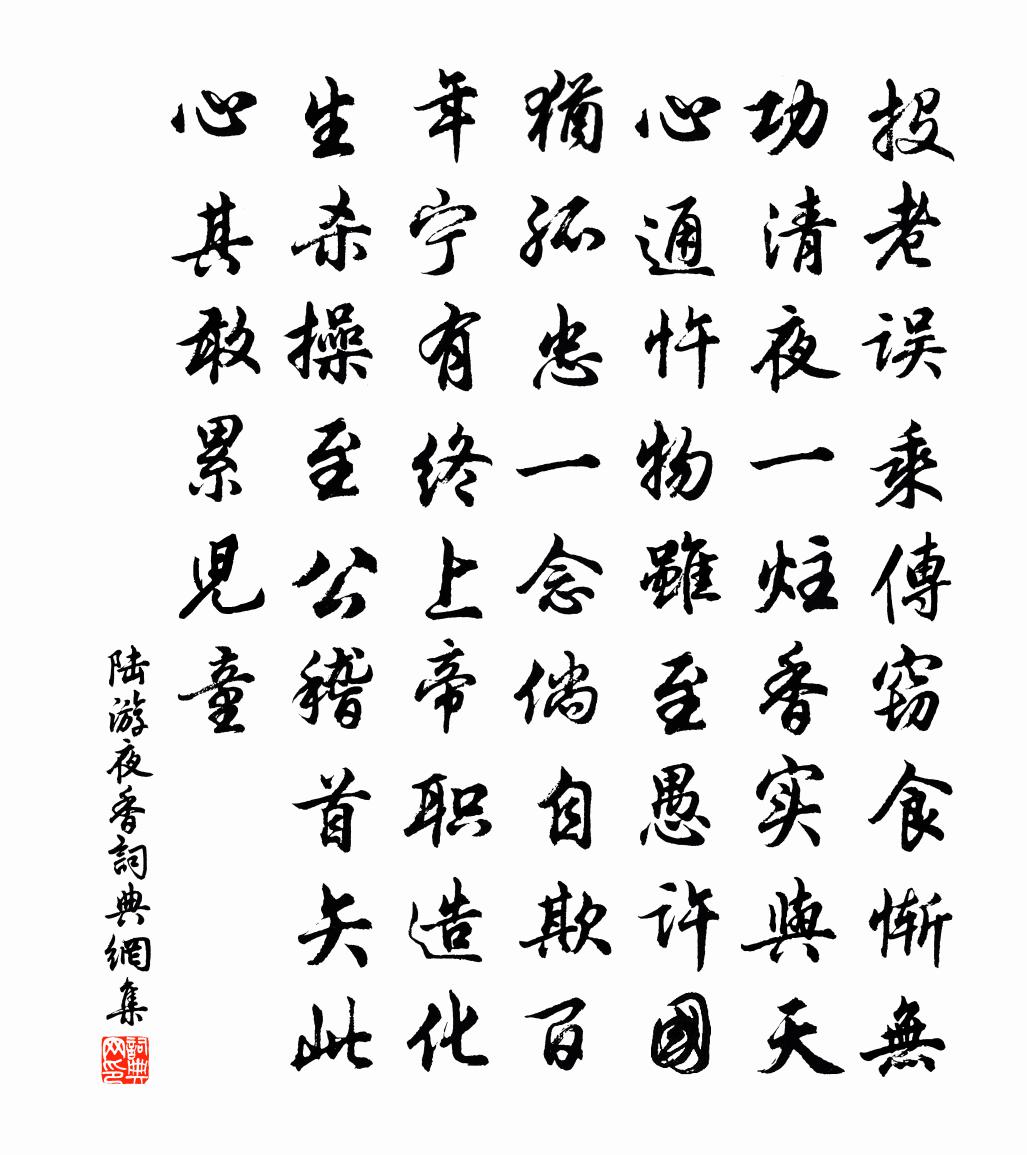 投老误乘傳窃食惭無
功清夜一炷香实與天
心通忤物雖至愚许國
猶孤忠一念倘自欺百
年宁有终上帝职造化
生杀操至公稽首矢此
心其敢累児童
陆游夜香詞典網集
詞典网印